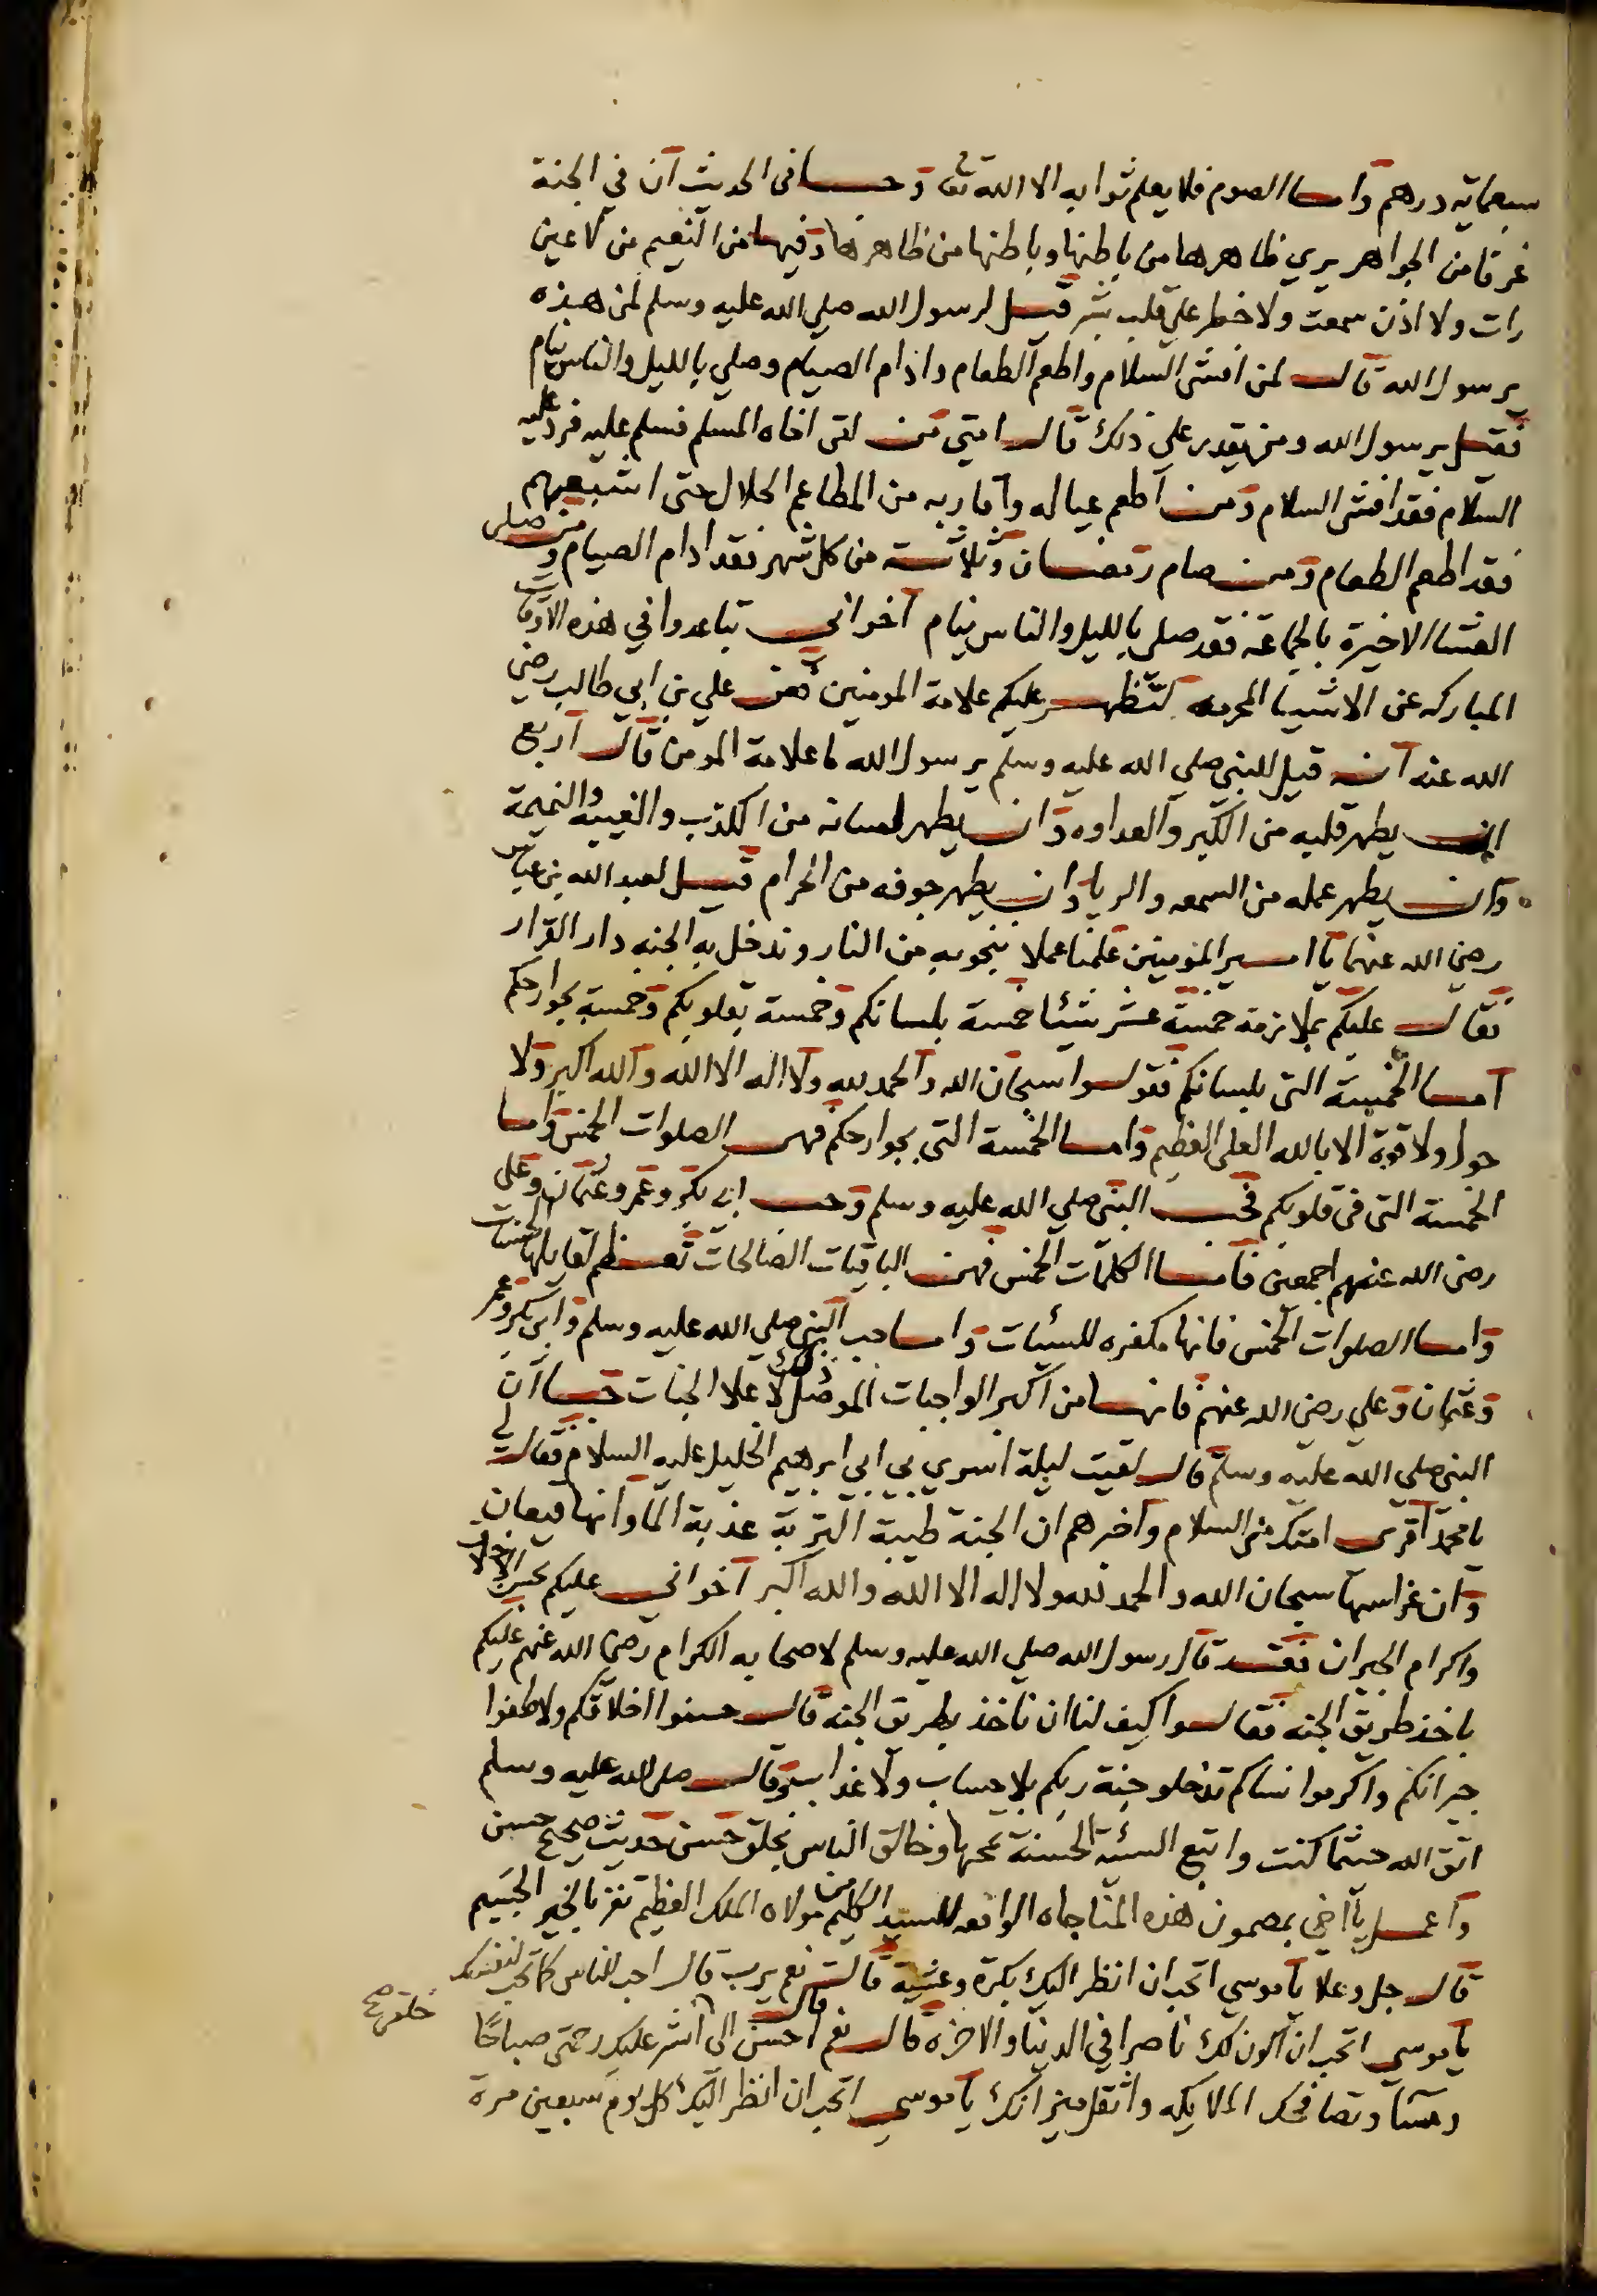 سبعمايه درهم واما الصوم فلا يعلم ثوابه الا الله تعا وجا في الحديث ان في الجنة
غرفا من الجواهر يري ظاهرها من باطنها وباطنها من ظاهرها وفيها من النعيم من لا عين
رات ولا اذن سمعت ولا خطر علي قلب بشر قيل لرسول الله صلي الله عليه وسلم لمن هذه
يرسول الله قال لمن افشى السلام واطعم الطعام وادام الصيام وصلي بالليل والناس نيام
فقيل يرسول الله ومن يقدر علي ذلك قال امتي من لقى اخاه المسلم فسلم عليه فرد عليه
السلام فقد افشى السلام ومن اطعم عياله واقاربه من المطاعم الحلال حتى اشبعهم
فقد اطعم الطعام ومن صام رمضان وثلاثة من كل شهر فقد ادام الصيام ومن صلى
العشا الاخيرة بالجماعة فقد صلي بالليل والناس نيام اخواني تباعدوا في هذه الاوقات
المباركه عن الاشيا المحرمه لتظهر عليكم علامة المومنين فعن علي بن ابي طالب رضي
الله عنه انه قيل للنبي صلي الله عليه وسلم يرسول الله ما علامة المومن قال اربع
ان يطهر قلبه من الكبر والعداوه وان يطهر لسانه من الكذب والغيبه والنميمة
وان يطهر عمله من السمعه والريا وان يطهر جوفه من الحرام قيل لعبد الله بن عباس
رضي الله عنهما يا امير المومنين علمنا عملا ننجو به من النار وندخل به الجنه دار القرار
فقال عليكم بملازمة خمسة عشر شيئا خمسة بلسانكم وخمسة بقلوبكم وخمسة بجوارحكم
اما الخمسة التى بلسانكم فقولوا سبحان الله والحمد لله ولا اله الا الله والله اكبر ولا
حول ولا قوة الا بالله العلى العظيم واما الخمسة التى بجوارحكم فهى الصلوات الخمس واما
الخمسة التى فى قلوبكم فحب النبى صلي الله عليه وسلم وحب ابى بكر وعمر وعثمان وعلى
رضى الله عنهم اجمعين فاما الكلمات الخمس فهن الباقيات الصالحات تعظم لقايلها الحسنات
واما الصلوات الخمس فانها مكفره للسيئات واما حب النبي صلي الله عليه وسلم وابى بكر وعمر
وعثمان وعلي رضي الله عنهم فانها من اكبر الواجبات الموصل ذلك لاعلا الجنات جا ان
النبى صلى الله عليه وسلم قال لقيت ليلة اسري بي ابي ابرهيم الخليل عليه السلام فقال لي
يا محمد اقرى امتك مني السلام واخبرهم ان الجنة طيبة التربة عذبة الما وانها قيعان
وان غراسها سبحان الله والحمد لله ولا اله الا الله والله اكبر اخواني عليكم بحسن الاخلاق
واكرام الجيران فقد قال رسول الله صلي الله عليه وسلم لاصحابه الكرام رضي الله عنهم عليكم
باخذ طريق الجنه فقالوا كيف لنا ان ناخذ بطريق الجنه قال حسنوا اخلاقكم ولاطفوا
جيرانكم واكرموا نساكم تدخلو جنة ربكم بلا حساب ولا عذاب وقال صلى الله عليه وسلم
اتق الله حيثما كنت واتبع السيئة الحسنة تمحها وخالق الناس بخلق حسن حديث صحيح حسن
واعمل يا اخي بمضمون هذه المناجاه الواقعه للسيد الكليم من مولاه الملك العظيم تفز بالخير الجسيم
قال جل وعلا يا موسي اتحب ان انظر اليك بكرة وعشية قال نعم يرب قال احب للناس كما تحب لنفسك
يا موسي اتحب ان اكون لك ناصرا في الدنيا والاخره قال نعم قال احسن الى خلقى صح انشر عليك رحمتى صباحا
ومسآ وتصافحك الملايكه واثقل ميزانك يا موسي اتحب ان انظر اليك كل يوم سبعين مرة